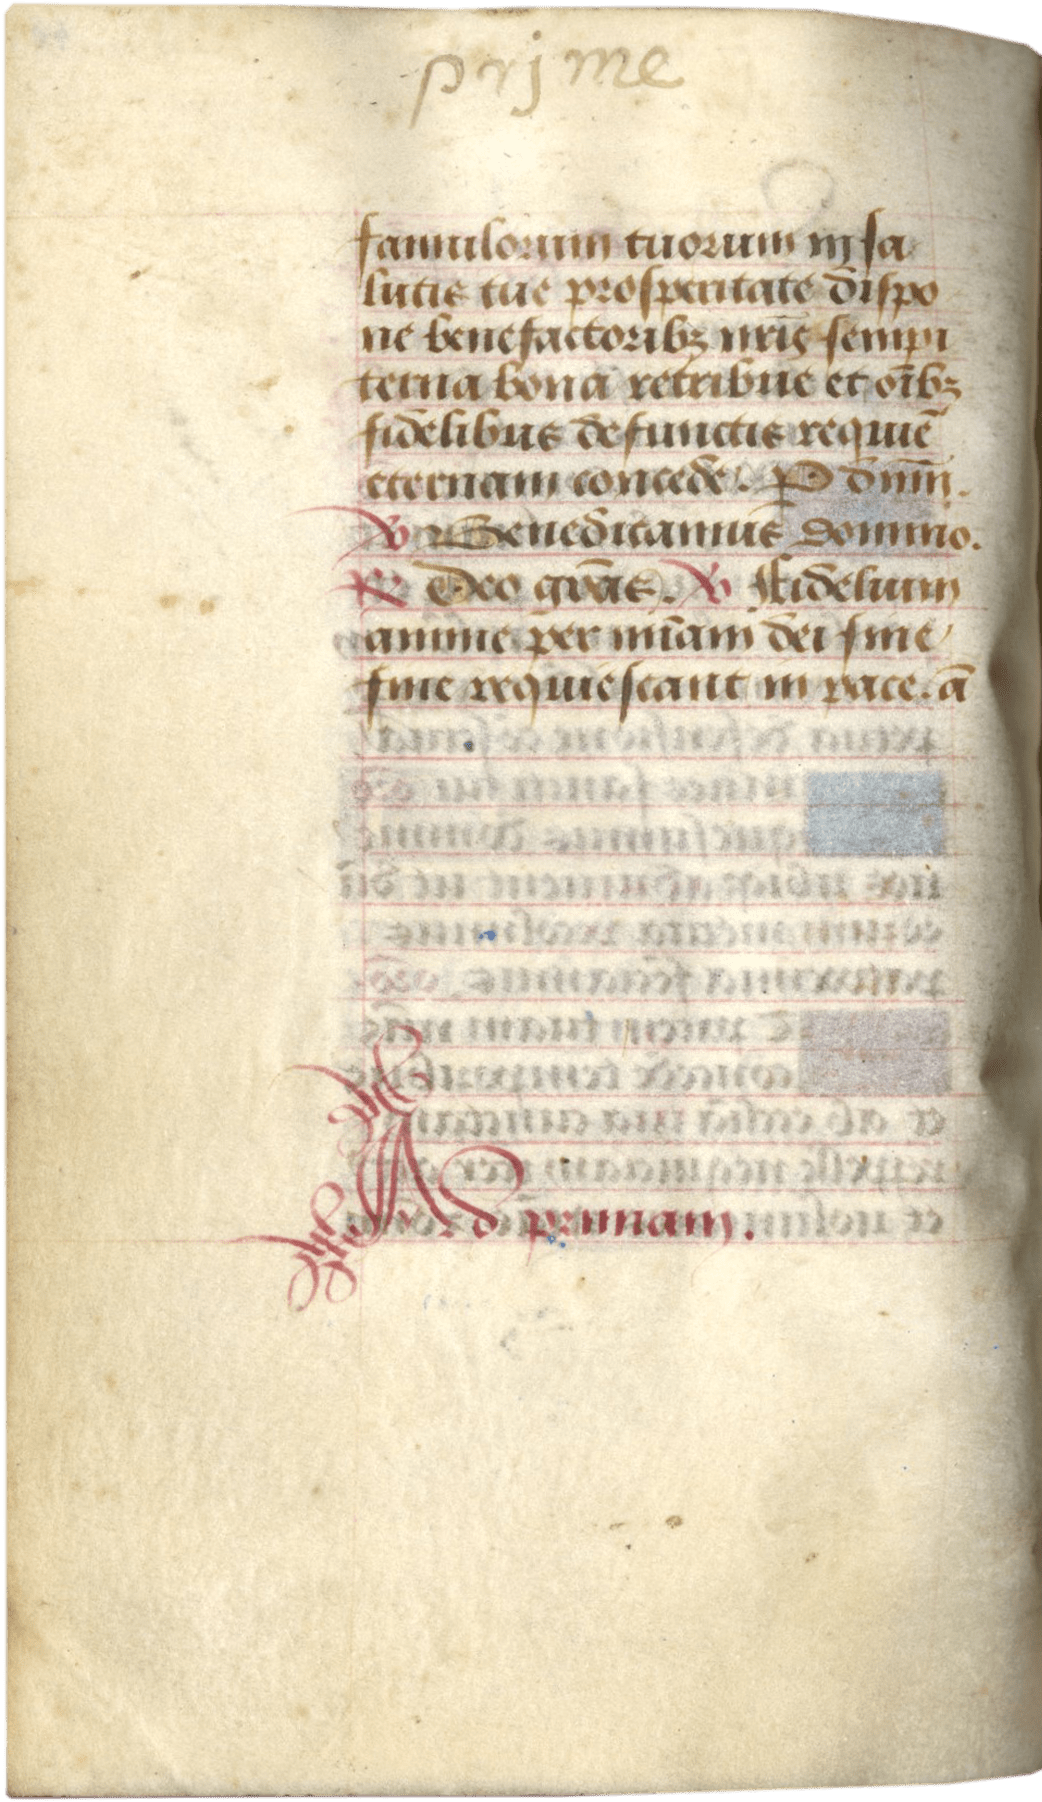 prjme
famulorum tuorum in sa
lutis tue prosperitate dispo
ne benefactoribꝫ nr̄is sempi
terna bona retribue et oībꝫ
fidelibus defunctis requiē
eternam concede. P dnm̄.
℣ Benedicamus domino.
℟ Deo gr̄as. ℣ Fidelium
anime per mīam dei sine
fine requiescant in pace. ā
Ad primam.